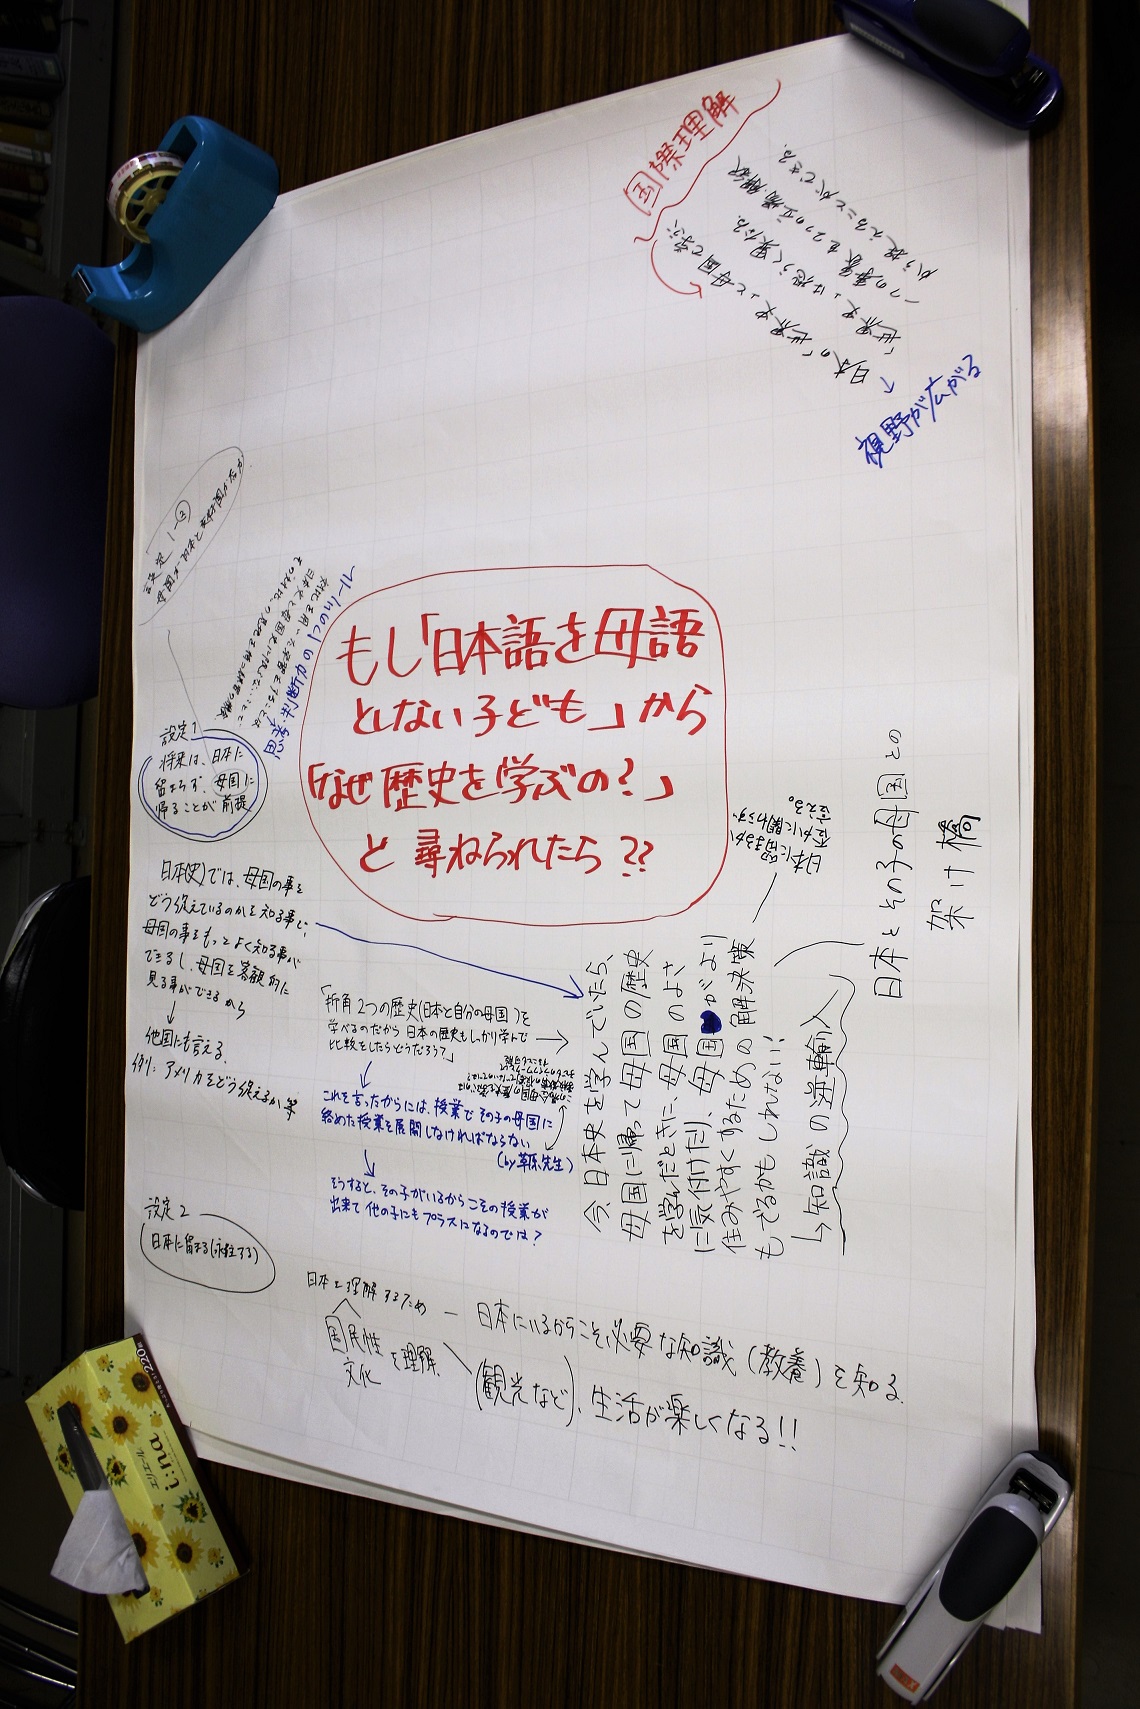 もし「日本語を母語
としない子ども」から
「なぜ歴史を学ぶの?」
と尋ねられたら??
国際理解
日本の「世界史」と母国で学ぶ
「世界史」は恐らく異なる。
一つの事象を2つの立場、解釈
から捉えることができる。
↓
視野が広がる
設定1
将来は、日本に
留まらず、母国に
帰ることが前提
思考・判断力の1つのツール
日本(史)では、母国の事を
どう捉えているのかを知る事で、
母国の事をもっとよく知る事が
できるし、母国を客観的に
見る事ができるから
↓
他国にも言える。
例:アメリカをどう捉えるか等
「折角2つの歴史(日本と自分の母国)を
学べるのだから日本の歴史もしっかり学んで
比較をしたらどうだろう?」
↓
これを言ったからには、授業でその子の母国に
絡めた授業を展開しなければならない
(by草原先生)
↓
そうすると、その子がいるからこその授業が
出来て他の子にもプラスになるのでは?
今、日本史を学んでいたら、
母国に帰って母国の歴史
を学んだときに、母国のよさ
に気付けたり、母国がより
住みやすくするための解決策
もでるかもしれない!!
↳知識の逆輸入
日本に留まるか
否かに関わらず
言える。
日本とその子の母国との
架け橋
設定2
日本に留まる(永住する)
日本を理解するため
国民性
文化
を理解
日本にいるからこそ必要な知識(教養)を知る
(観光など)、生活が楽しくなる!!
エリエール
i:na
220
MAX